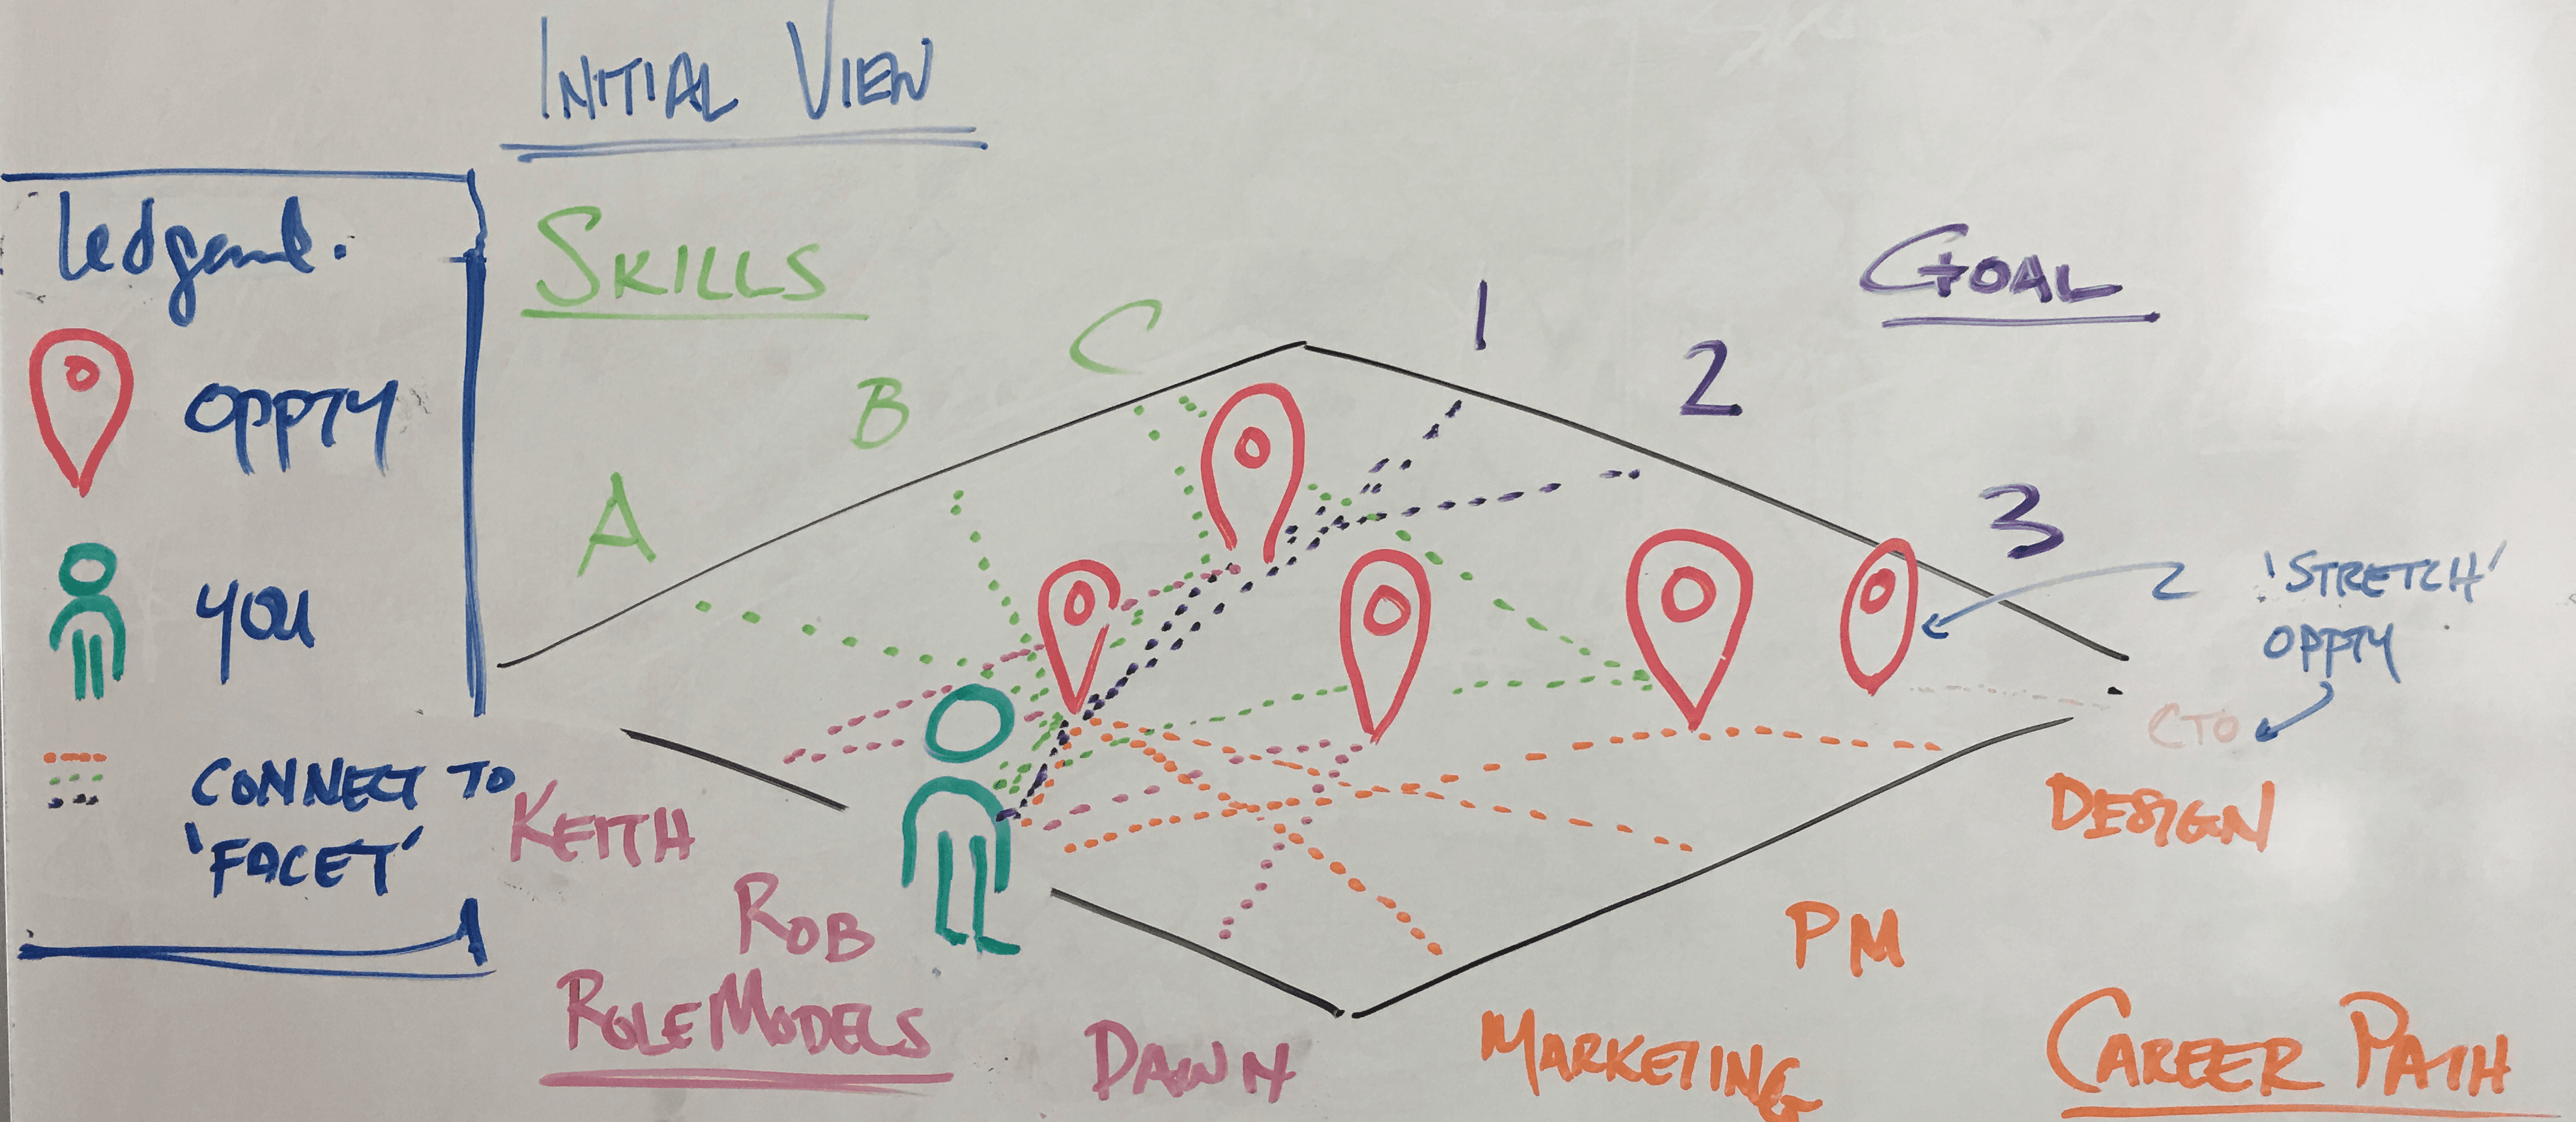 INITIAL VIEW
Ledgend.
OPPTY
YOU
CONNECT TO
'FACET'
SKILLS
A
B
C
GOAL
1
2
3
'STRETCH'
OPPTY
CTO
DESIGN
PM
MARKETING
CAREER PATH
KEITH
ROB
DAWN
ROLE MODELS